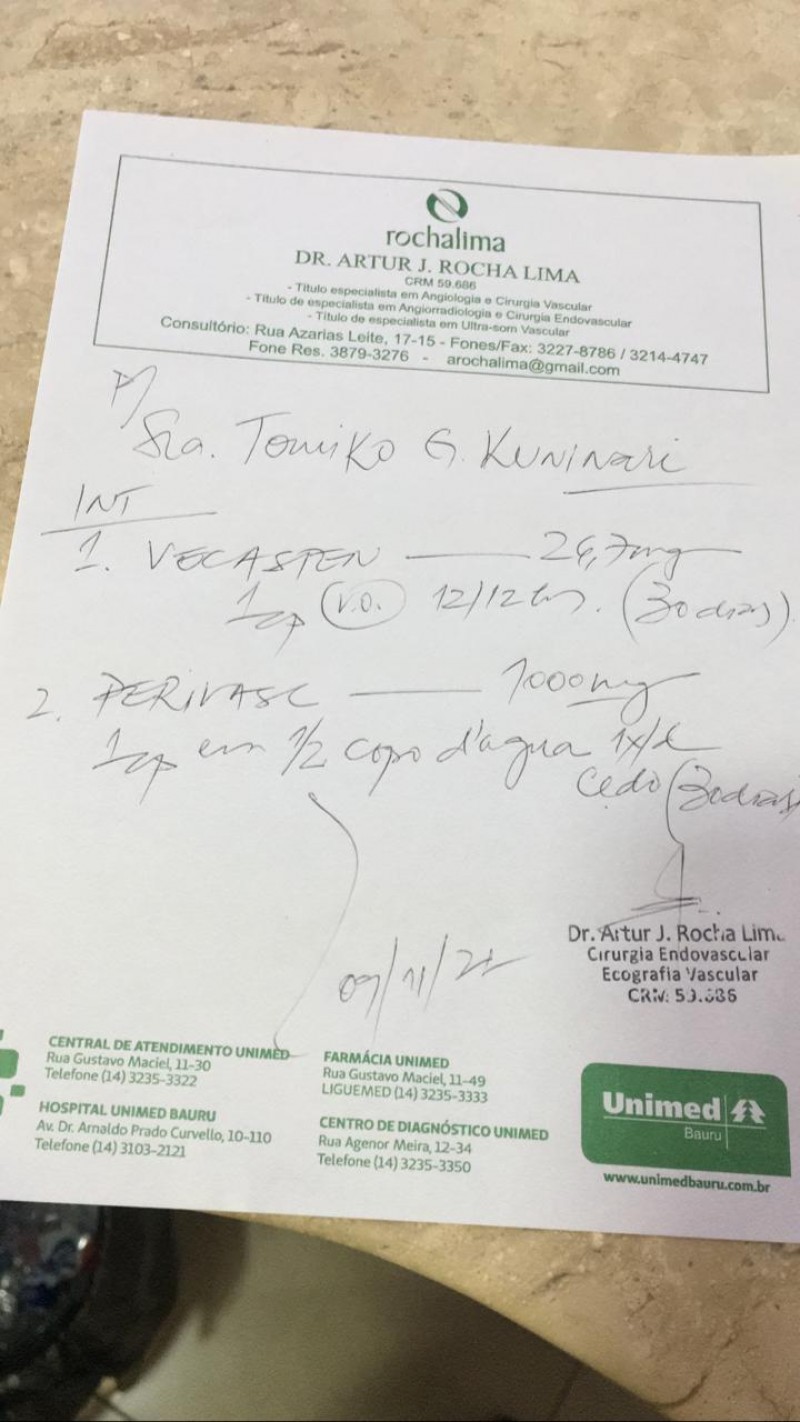 rochalima
DR. ARTUR J. ROCHA LIMA
CRM 59.686
- Título especialista em Angiologia e Cirurgia Vascular
- Título de especialista em Angiorradiologia e Cirurgia Endovascular
- Título de especialista em Ultra-som Vascular
Consultório: Rua Azarias Leite, 17-15 - Fones/Fax: 3227-8786 / 3214-4747
Fone Res. 3879-3276 - arochalima@gmail.com
P/
Sra. Tomiko G. Kuninari
INT
1. VECASTEN 26,7mg
1cp V.O. 12/12hs. (30 dias)
2. PERIVASC 1000mg
1cp em 1/2 copo d'água 1x/d
cedo (30 dias)
Dr. Artur J. Rocha Lima
Cirurgia Endovascular
Ecografia Vascular
CRM: 59.686
CENTRAL DE ATENDIMENTO UNIMED
Rua Gustavo Maciel, 11-30
Telefone (14) 3235-3322
HOSPITAL UNIMED BAURU
Av. Dr. Arnaldo Prado Curvello, 10-110
Telefone (14) 3103-2121
FARMÁCIA UNIMED
Rua Gustavo Maciel, 11-49
LIGUEMED (14) 3235-3333
CENTRO DE DIAGNÓSTICO UNIMED
Rua Agenor Meira, 12-34
Telefone (14) 3235-3350
Unimed
Bauru
www.unimedbauru.com.br